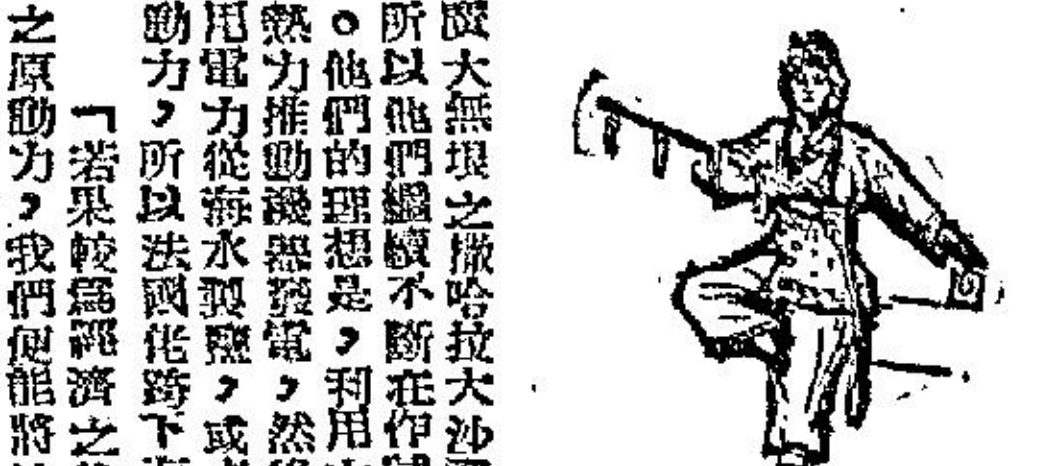 大無垠之撒哈拉大沙
所以他們繼續不斷在作
。他們的理想是，利用
熱力推動機器發電，然
用電力從海水製鹽，或
動力，所以法國化下
「若果較爲經濟之
之原動力，我們便能將